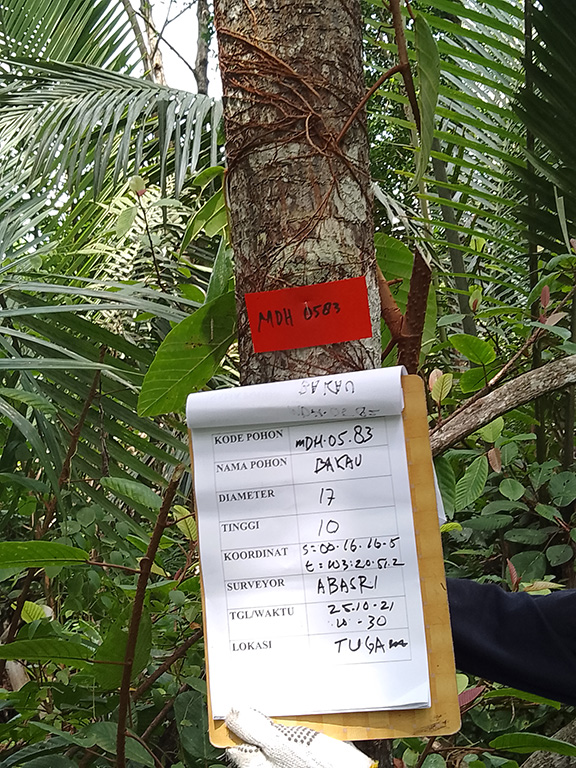 MDH 0583
BAKAU
KODE POHON MDH.05.83
NAMA POHON BAKAU
DIAMETER 17
TINGGI 10
KOORDINAT S=00.16.16.5
E=103.20.51.2
SURVEYOR ABASRI
TGL/WAKTU 25.10-21
-30
LOKASI TUGA